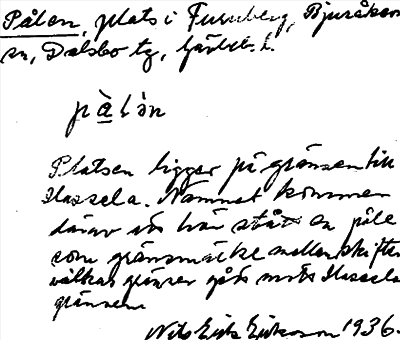 Pålen, plats i Furuberg, Bjuråkers
sn, Dalsbo tg, Gävleb. l.
pàlən
Platsen ligger på gränsen till
Hassela. Namnet kommer
därav att här stått en påle
som gränsmärke mellan skiften
vilkas gränser gått mot Hassela
gränsen
Nils Erik Eriksson 1936.